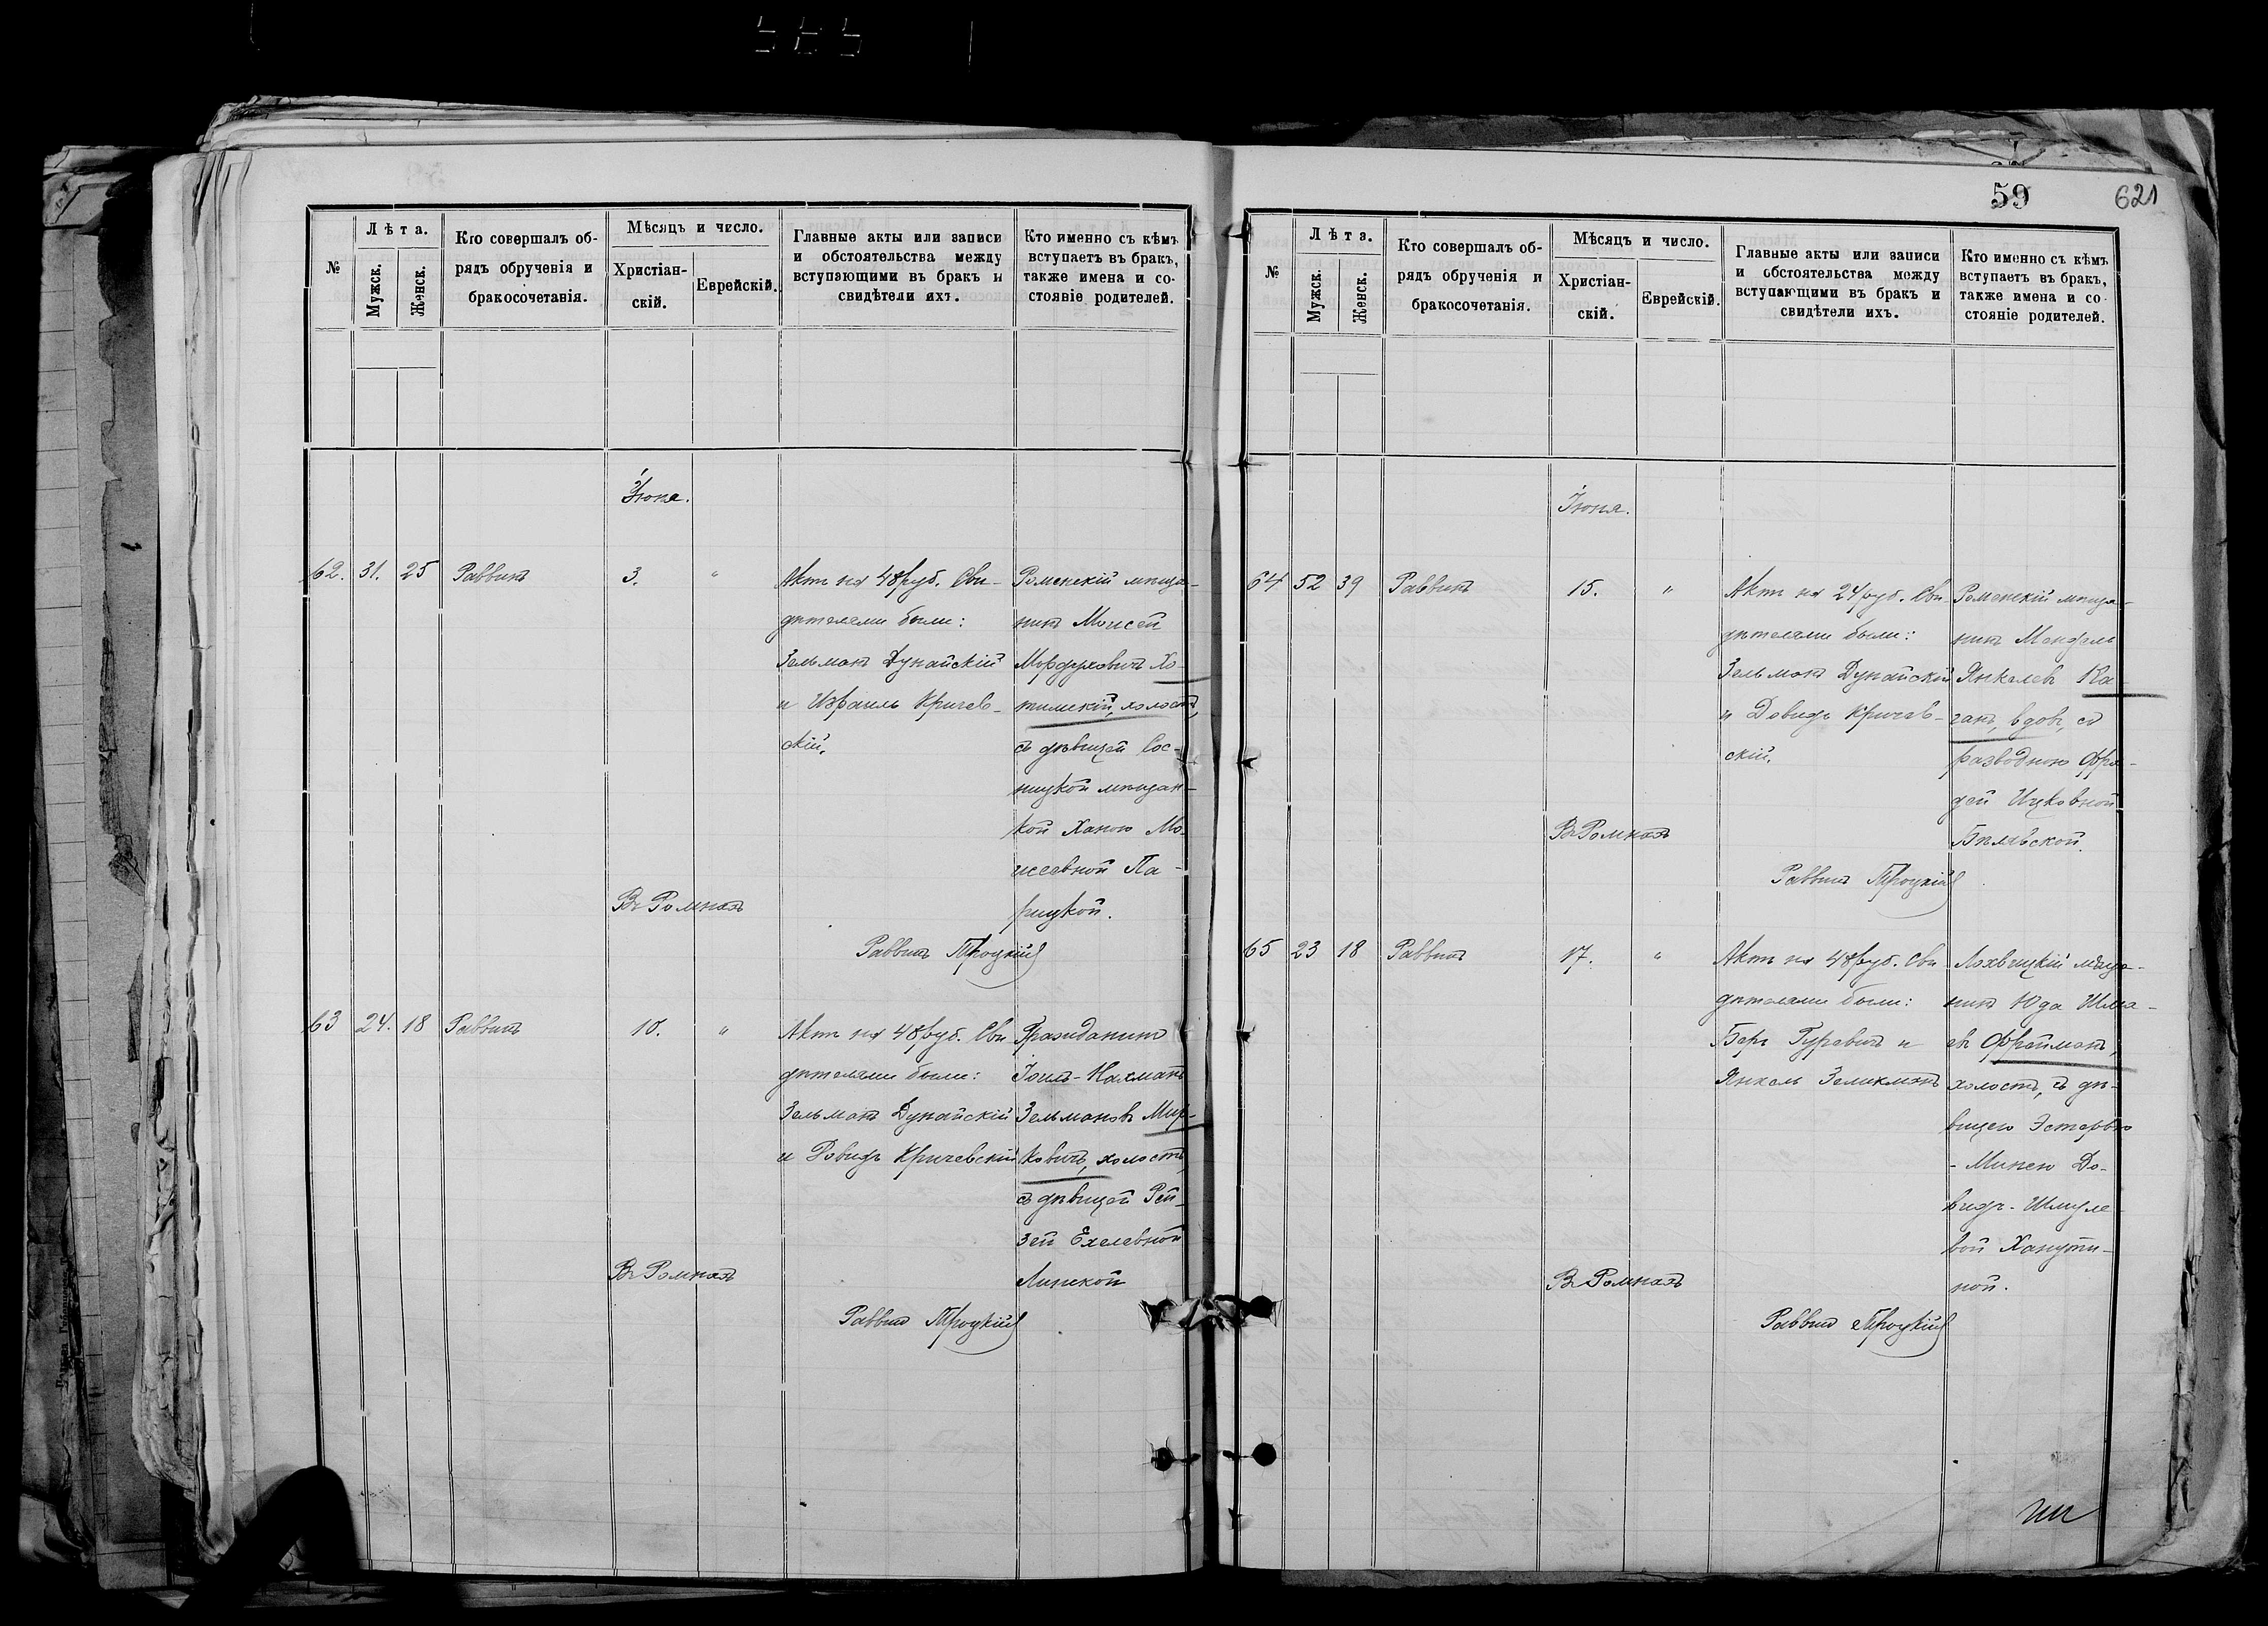 59
621
№
Лѣта.
Мужск.
Женск.
Кто совершалъ об-
рядъ обрученія и
бракосочетанія.
Мѣсяцъ и число.
Христіан-
скій.
Еврейскій.
Главные акты или записи
и обстоятельства между
вступающими въ бракъ и
свидѣтели ихъ.
Кто именно съ кѣмъ
вступаетъ въ бракъ,
также имена и со-
стояніе родителей.
Іюня.
62. 31. 25 Раввинъ 3. "
Актъ на 48 руб. Сви-
дѣтелями были:
Зельманъ Дунайскій
и Израиль Кричев-
скій.
Роменскій мѣща-
нинъ Моисей
Мордуховичъ Хо-
тимскій, холостъ,
съ дѣвицей Сос-
ницкой мѣщан-
кой Ханою Мо-
исеевной Па-
рицкой.
Въ Ромнахъ
Раввинъ Троцкій
63 24. 18 Раввинъ 10. "
Актъ на 48 руб. Сви
дѣтелями были:
Зельманъ Дунайскій
и Довидъ Кричевскій
Гражданинъ
Іоиль-Нахманъ
Зельмановъ Мир-
ковичъ, холостъ,
съ дѣвицей Рей-
зей Ехелевной
Линской
Въ Ромнахъ
Раввинъ Троцкій
№
Лѣта.
Мужск.
Женск.
Кто совершалъ об-
рядъ обрученія и
бракосочетанія.
Мѣсяцъ и число.
Христіан-
скій.
Еврейскій.
Главные акты или записи
и обстоятельства между
вступающими въ бракъ и
свидѣтели ихъ.
Кто именно съ кѣмъ
вступаетъ въ бракъ,
также имена и со-
стояніе родителей.
Іюня.
64 52 39 Раввинъ 15. "
Актъ на 24 руб. Сви
дѣтелями были:
Зельманъ Дунайскій
и Довидъ Кричев-
скій.
Роменскій мѣща-
нинъ Мендель
Янкелевъ Ка-
ганъ, вдовъ, съ
разводною Фра-
дей Ицковной
Бѣлявской.
Въ Ромнахъ
Раввинъ Троцкій
65 23 18 Раввинъ 17. "
Актъ на 48 руб. Сви
дѣтелями были:
Беръ Гуревичъ и
Янкель Зеликманъ
Лохвицкій мѣща-
нинъ Юда Шлма-
евъ Фрейманъ,
холостъ, съ дѣ-
вицею Эстерою
- Минею До-
видъ-Шмуле
вой Ханути-
ной.
Въ Ромнахъ
Раввинъ Троцкій